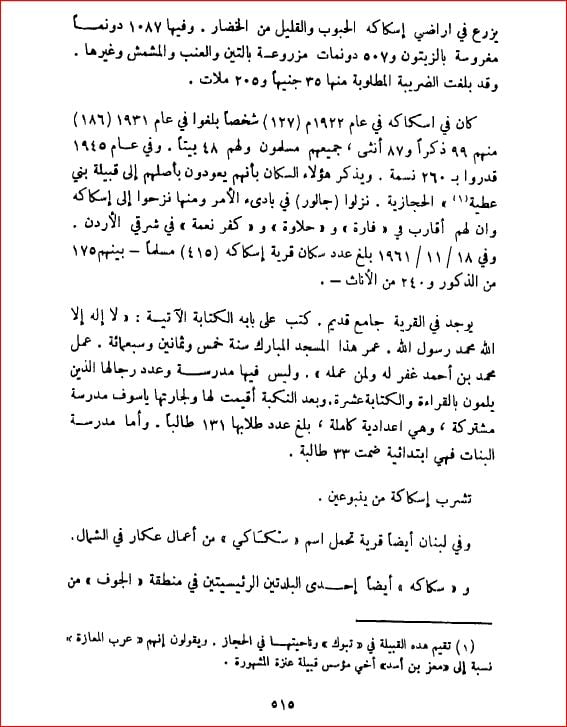 يزرع في اراضي إسكاكه الحبوب والقليل من الخضار . وفيها ١٠٨٧ دونمـاً
مغروسة بالزيتون و٥٠٧ دونمات مزروعة بالتين والعنب والمشمش وغيرها .
وقد بلغت الضريبة المطلوبة منها ٣٥ جنيهاً و٢٠٥ ملات .
كان في اسكاكه في عام ١٩٢٢م (١٢٧) شخصاً بلغوا في عام ١٩٣١ (١٨٦)
منهم ٩٩ ذكراً و٨٧ أنثى ، جميعهم مسلمون ولهم ٤٨ بيتاً . وفي عام ١٩٤٥
قدروا بـ ٢٦٠ نسمة . ويذكر هؤلاء السكان بأنهم يعودون بأصلهم إلى قبيلة بني
عطية(١) » الحجازية . نزلوا (جالور) في بادىء الأمر ومنها نزحوا إلى إسكاكه
وان لهم أقارب في « فارة » و « حلاوة » و « كفر نعمة » في شرقي الأردن .
وفي ١٨ / ١١ / ١٩٦١ بلغ عدد سكان قرية إسكاكه (٤١٥) مسلماً – بينهم ١٧٥
من الذكور و٢٤٠ من الأناث – .
يوجد في القرية جامع قديم . كتب على بابه الكتابة الآتية : « لا إله إلا
الله محمد رسول الله . عمر هذا المسجد المبارك سنة خمس وثمانين وسبعمائة . عمل
محمد بن أحمد غفر له ولمن عمله » . وليس فيها مدرسة وعدد رجالها الذين
يلمون بالقراءة والكتابة عشرة. وبعد النكبة أقيمت لها ولجارتها ياسوف مدرسة
مشتركة ، وهي اعدادية كاملة ، بلغ عدد طلابها ١٣١ طالباً . وأما مدرسة
البنات فهي ابتدائية ضمت ٣٣ طالبة .
تشرب إسكاكة من ينبوعين .
وفي لبنان أيضاً قرية تحمل اسم « سكاكي » من أعمال عكار في الشمال.
و « سكاكه » أيضاً إحدى البلدتين الرئيسيتين في منطقة « الجوف » من
(١) تقيم هده القبيلة في « تبوك » وناحيتها في الحجاز . ويقولون إنهم « عرب المعازة »
نسبة إلى «معز بن أسد» أخي مؤسس قبيلة عنزة المشهورة .
٥١٥